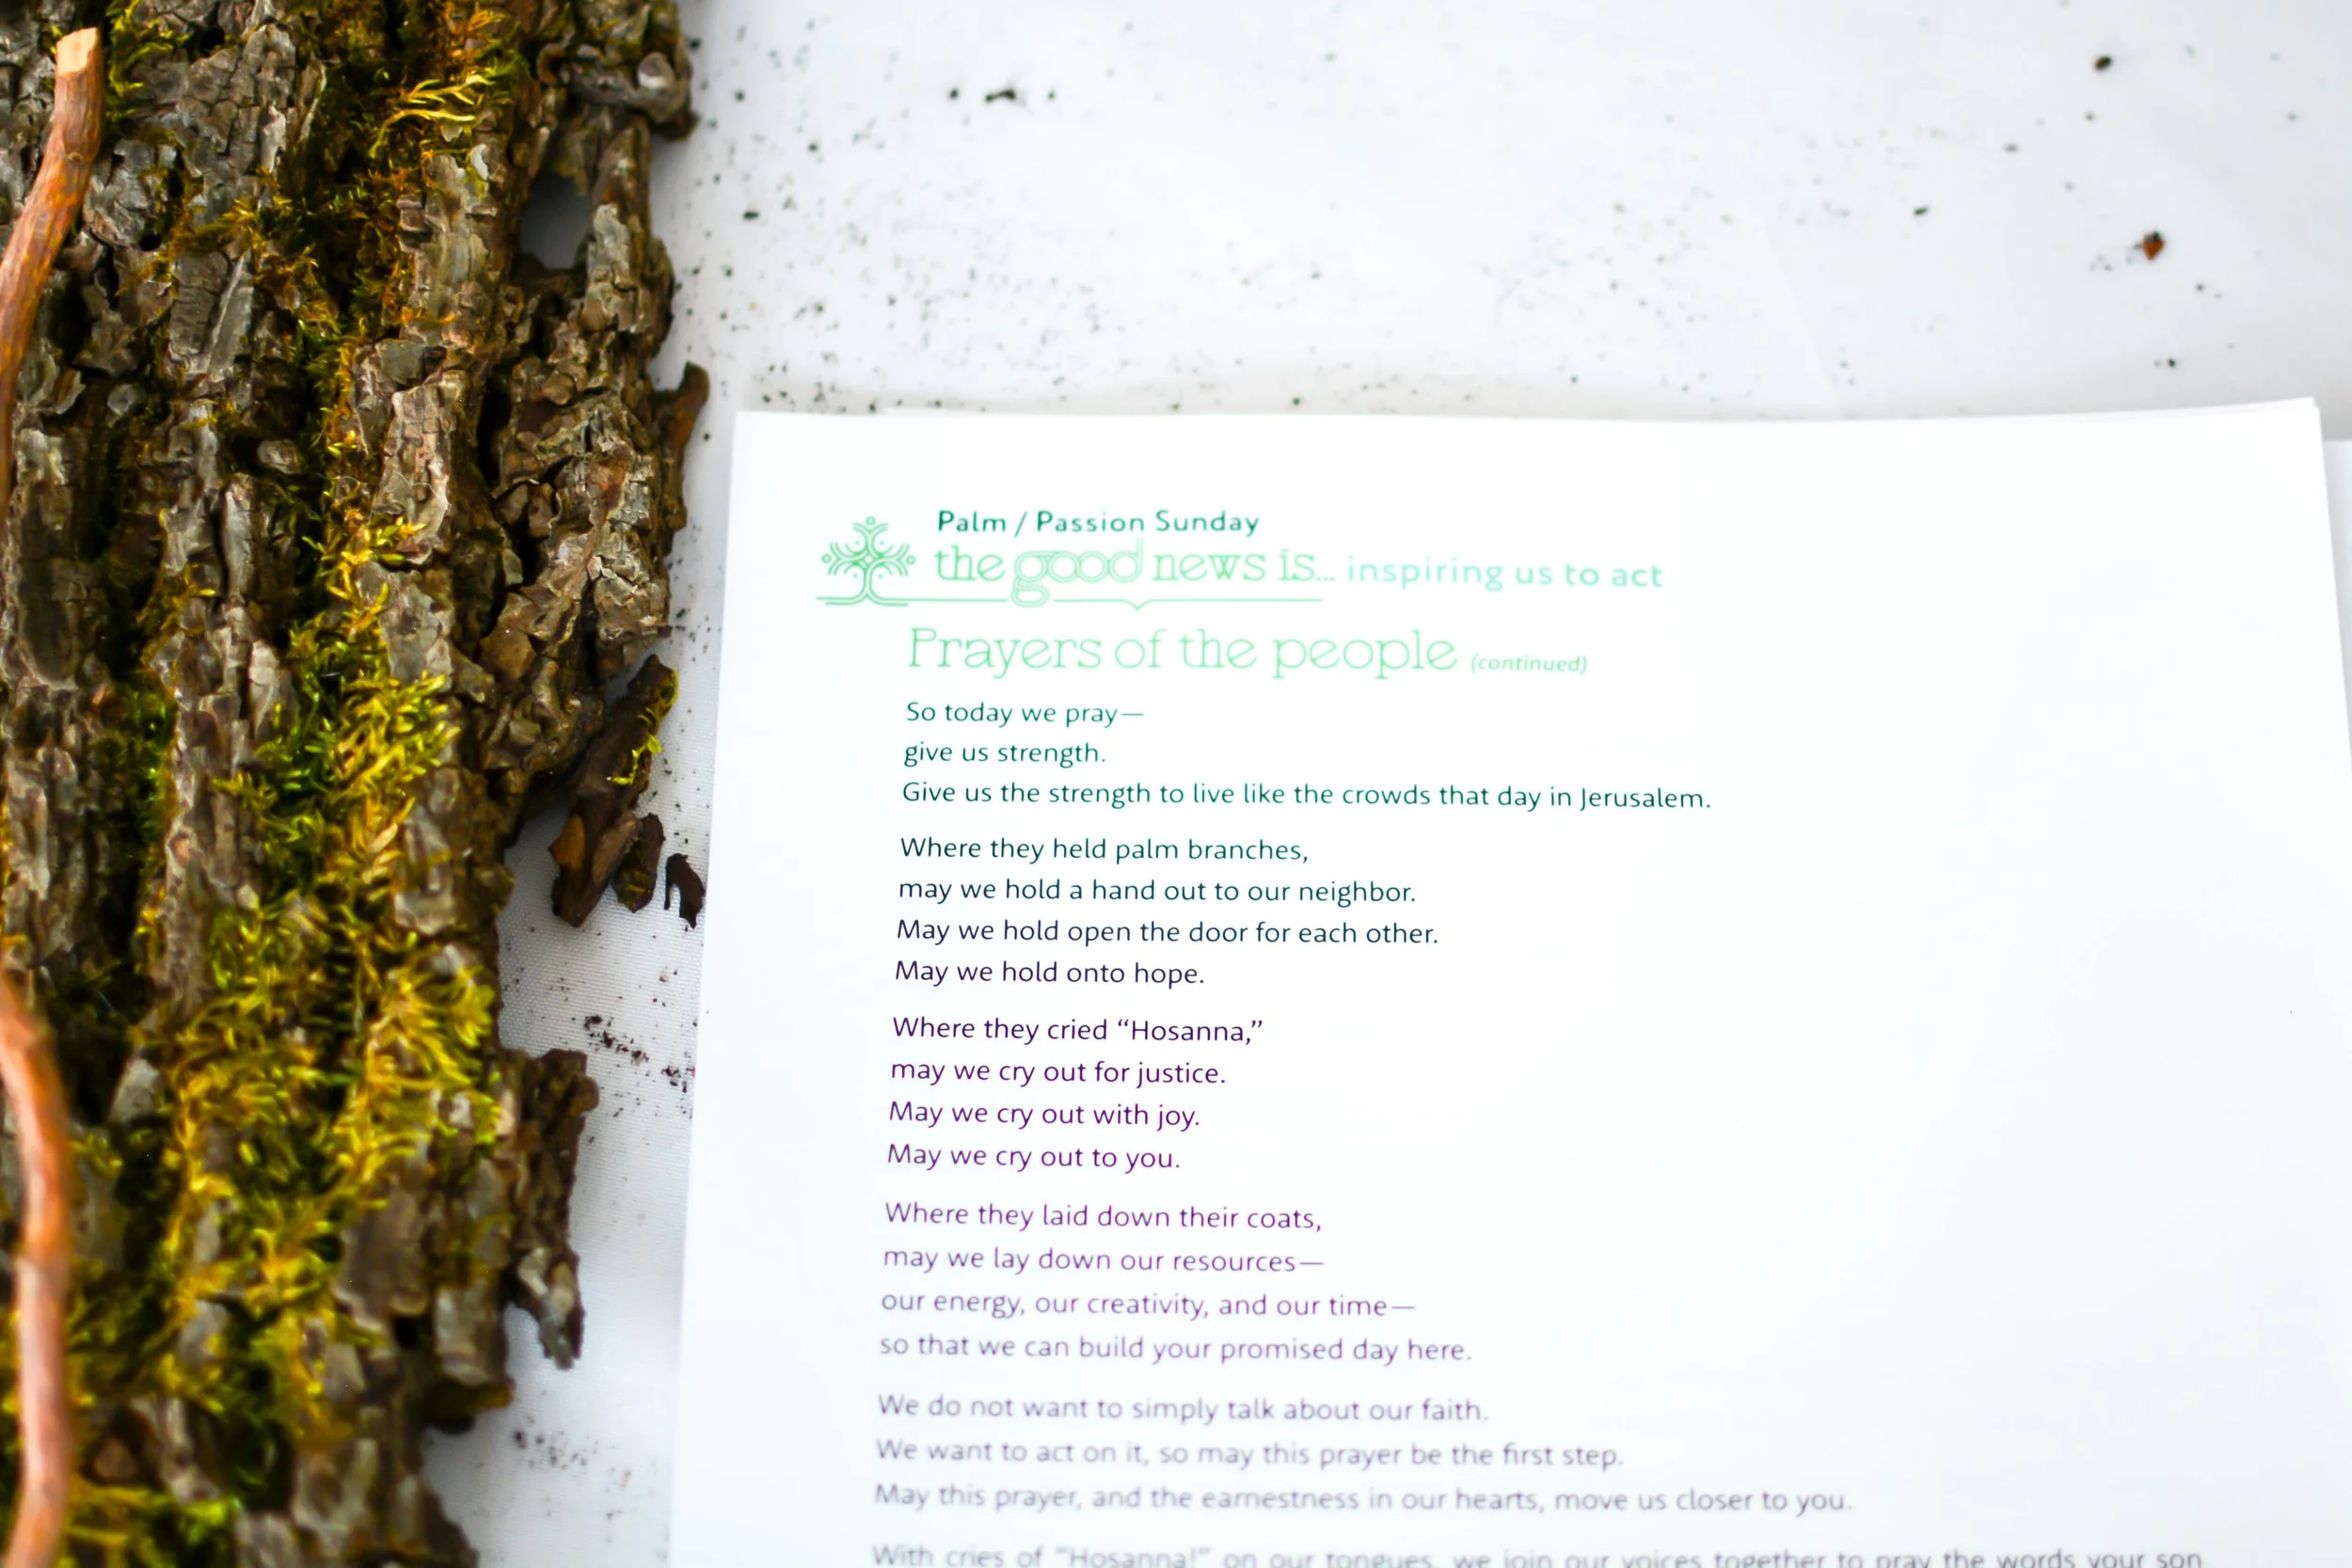 Palm / Passion Sunday
the good news is... inspiring us to act
Prayers of the people (continued)
So today we pray—
give us strength.
Give us the strength to live like the crowds that day in Jerusalem.
Where they held palm branches,
may we hold a hand out to our neighbor.
May we hold open the door for each other.
May we hold onto hope.
Where they cried “Hosanna,”
may we cry out for justice.
May we cry out with joy.
May we cry out to you.
Where they laid down their coats,
may we lay down our resources—
our energy, our creativity, and our time—
so that we can build your promised day here.
We do not want to simply talk about our faith.
We want to act on it, so may this prayer be the first step.
May this prayer, and the earnestness in our hearts, move us closer to you.
With cries of “Hosanna!” on our tongues, we join our voices together to pray the words your son